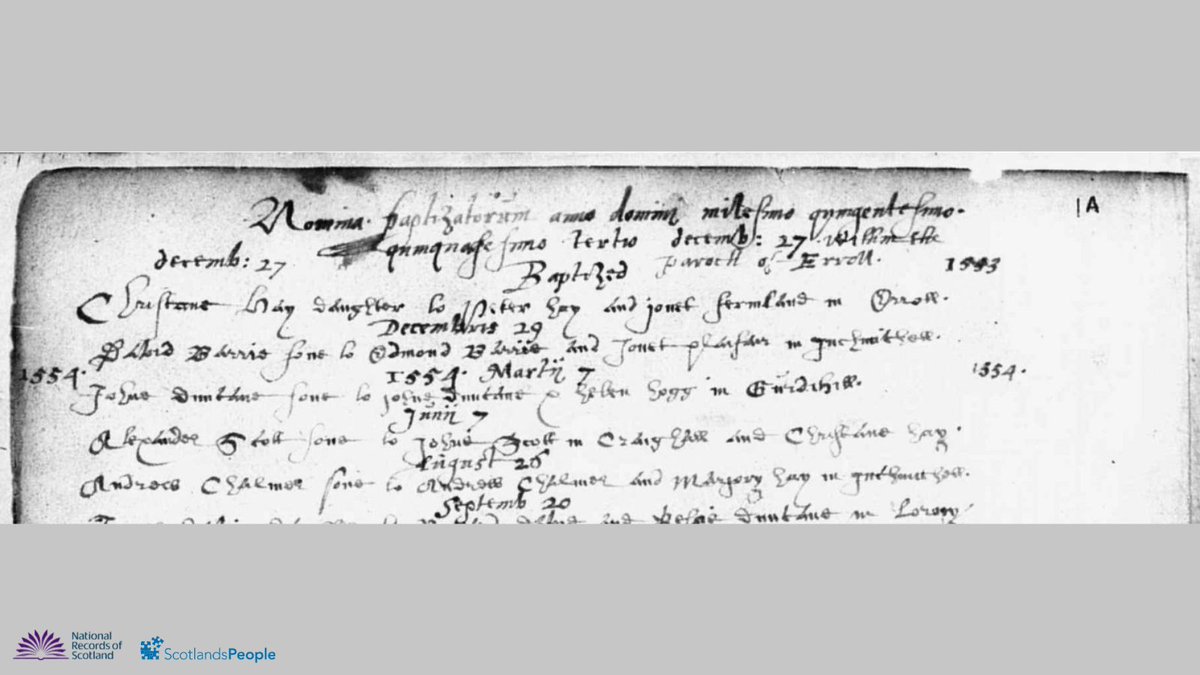 Nomina baptizatorum anno domini milesimo quingentesimo. | A
quinquagesimo tertio decemb: 27 within the
decemb: 27 Baptized paroch of Erroll. 1553
Christane Hay daughter to Peter hay and jonet fermland in Errole.
Decembris 29
David Barrie sone to Edmond Barrie and Jonet plafair in
1554. 1554. Martij 7 1554.
Johne sone to johne helen hogg in Gurdihill.
Junij 7
Alexander Scott sone to Johne Scott in Craighall and Christane hay.
August 26
Andrew Chalmer sone to Andrew Chalmer and Marjory hay in
Septemb 20
and in
National
Records of
Scotland
ScotlandsPeople